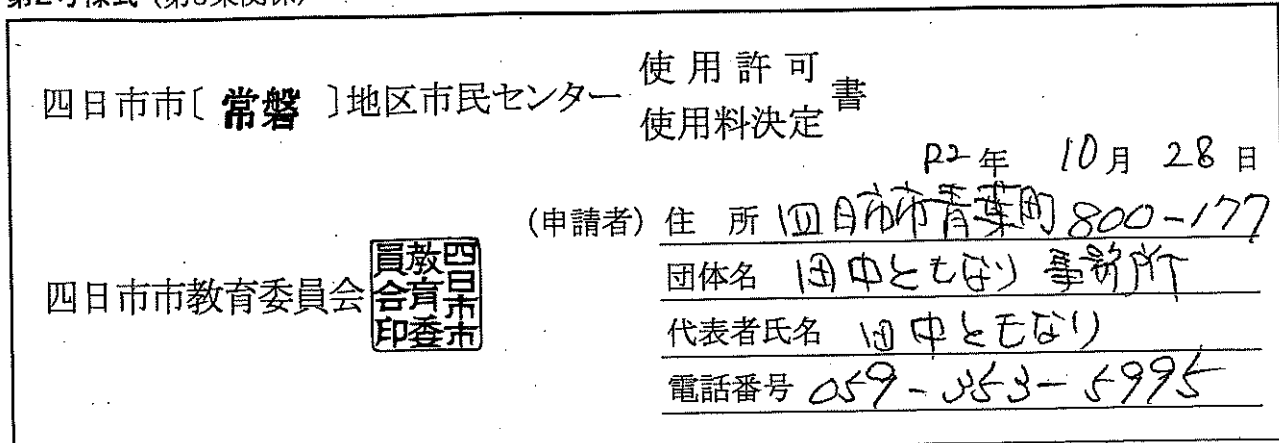 第2号様式（第3条関係）
四日市市〔 常磐 〕地区市民センター 使用許可 使用料決定 書
R2年 10月 28日
(申請者) 住所 四日市市青葉町800-177
団体名 田中ともなり事務所
代表者氏名 田中ともなり
電話番号 059-353-5995
四日市市教育委員会
四日市市教育委員会印